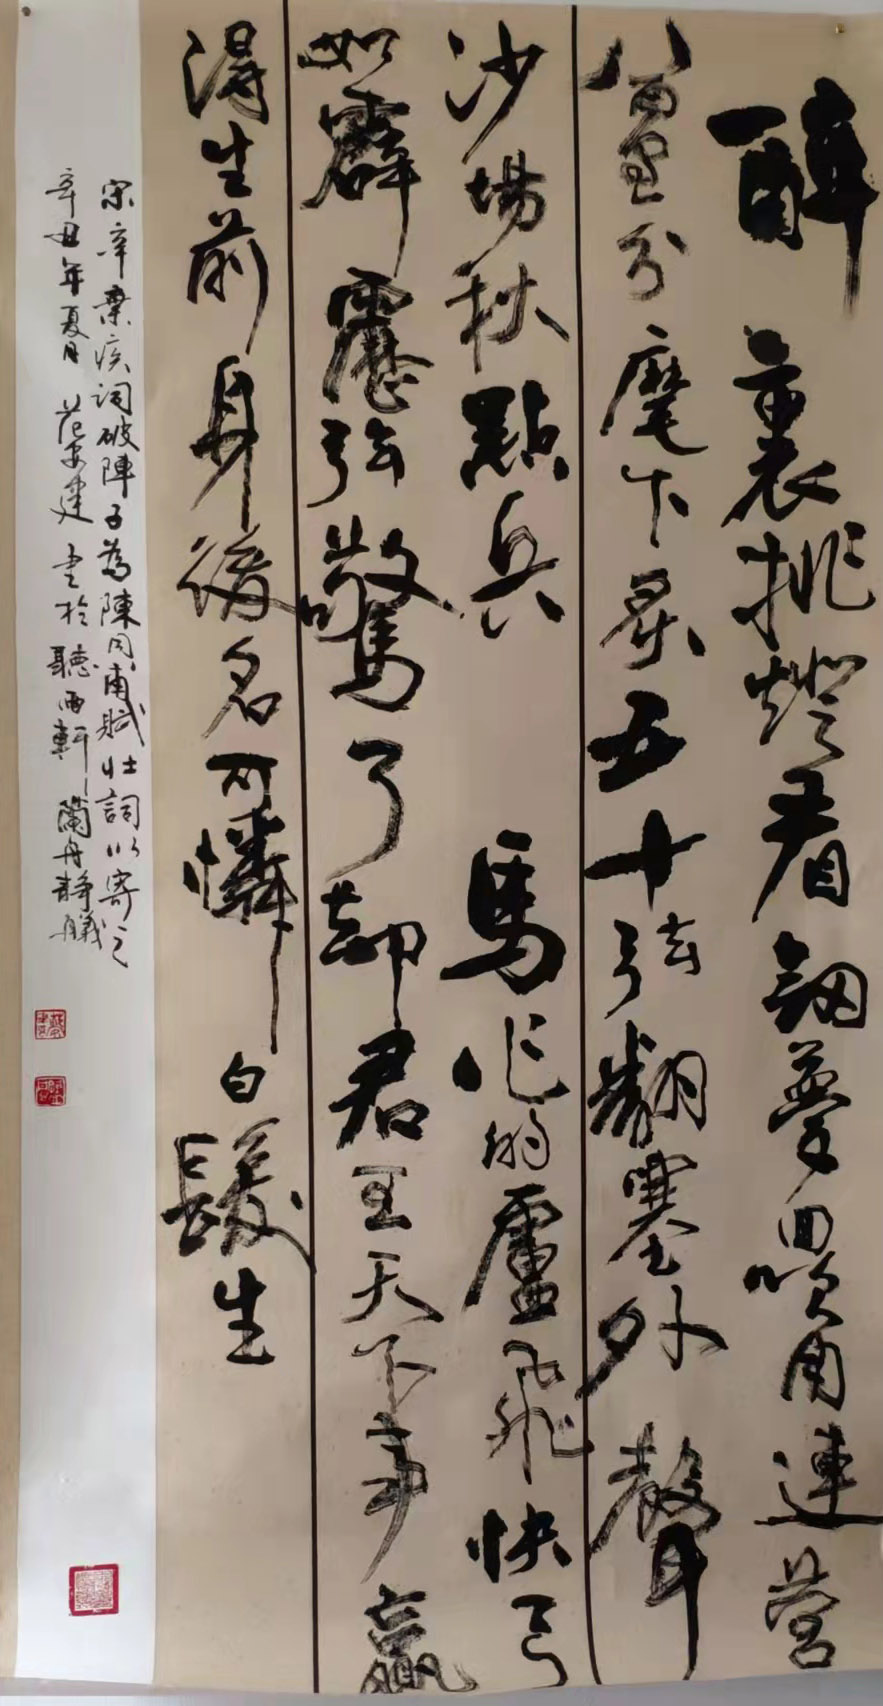 醉裏挑燈看劍夢回吹角連營
八百里分麾下炙五十弦翻塞外聲
沙場秋點兵馬作的盧飛快弓
如霹靂弦驚了却君王天下事贏
得生前身後名可憐白髮生
宋辛棄疾詞破陣子為陳同甫賦壯詞以寄之
辛丑年夏月范安建书於聽雨軒蘭舟靜